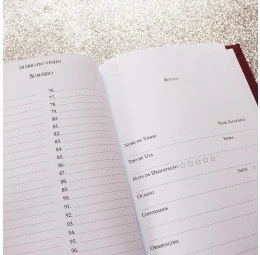 DIÁRIO DO VINHO
SUMÁRIO
76.
77.
78.
79.
80.
81.
82.
83.
84.
85.
86.
87.
88.
89.
90.
91.
92.
93.
94.
95.
96.
RÓTULO
NOME DO VINHO
TEOR ALCOÓLICO
TIPO DE UVA
SAFRA
NOTAS DE DEGUSTAÇÃO ☆☆☆☆☆
QUANDO
CONVIDADOS
OBSERVAÇÕES